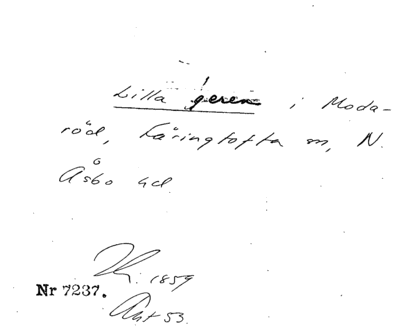 Lilla geren i Moda-
röd, Färingtofta sn, N.
Åsbo hd.
Th. 1859
Nr 7237.
Akt 53.